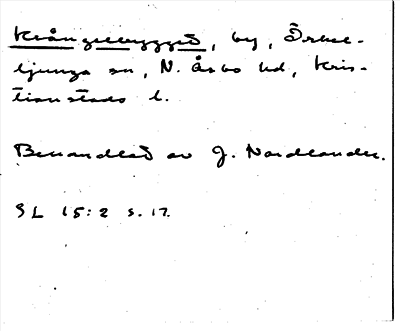 Krångebygget, by, Örke-
ljunga sn, N. Åsbo hd, Kris-
tianstads l.
Behandlad av J. Nordlander.
SL 15:2 s. 17.